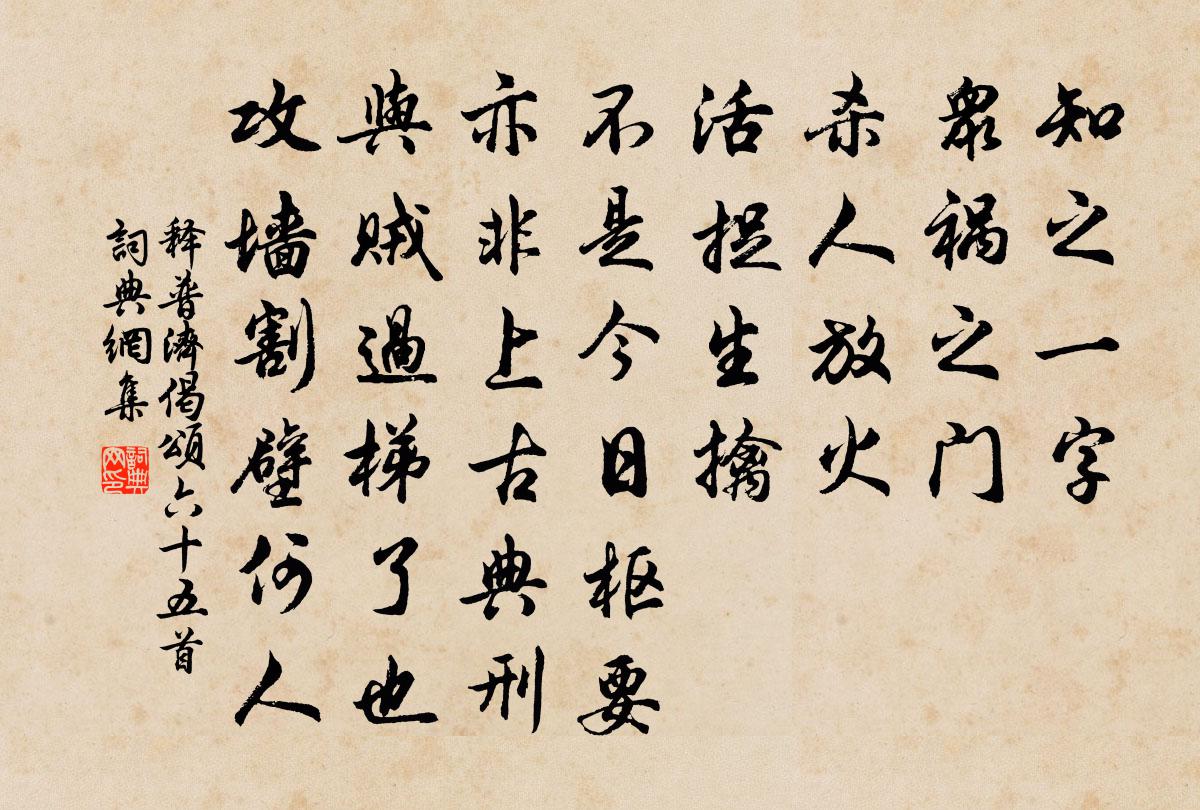 知之一字
衆祸之门
杀人放火
活捉生擒
不是今日枢要
亦非上古典刑
與贼過梯了也
攻墙割壁何人
释普濟偈頌六十五首
詞典網集
詞典
网印